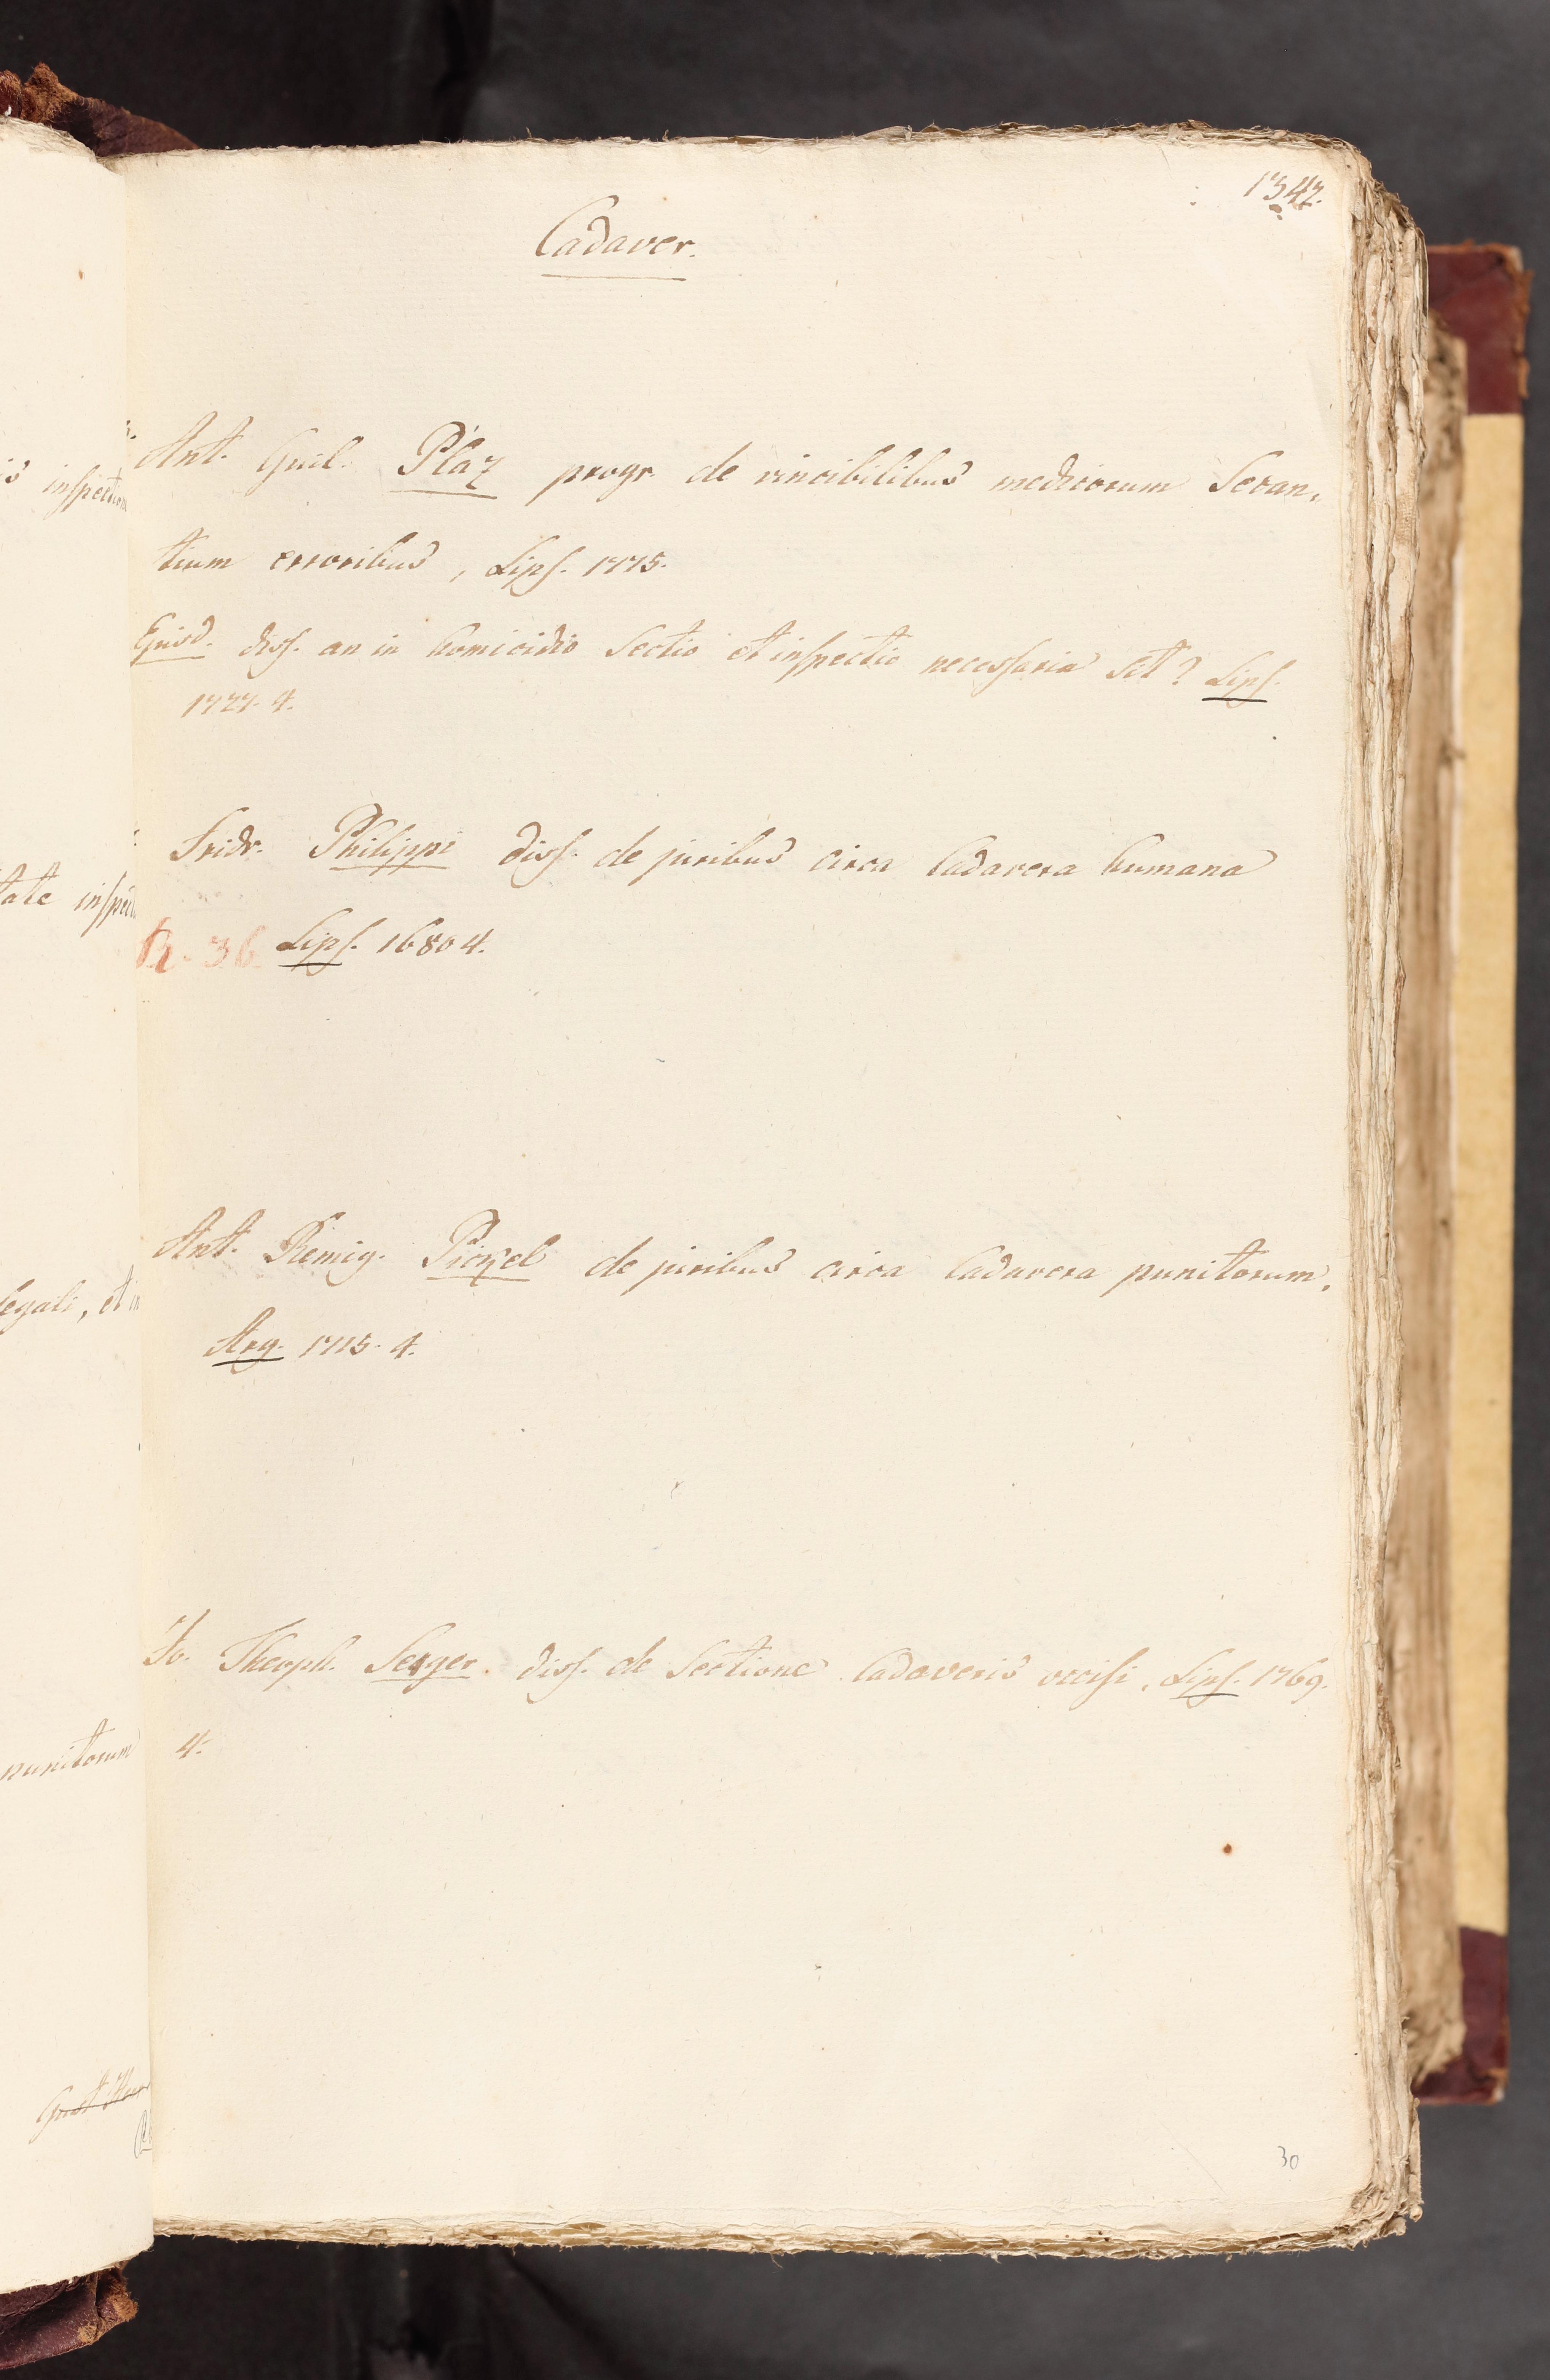 1347.
Cadaver.
Ant. Guil. Plaz progr. de vincibilibus medicorum Secan,
tium erroribus, Lips. 1775.
Ejusd. diss. an in homicidio Sectio et inspectio necessaria sit? Lips.
1727. 4.
Fridr. Philippi diss. de juribus circa Cadavera humana
R. 36 Lips. 1680 4.
Ant. Remig. Pickel de juribus circa Cadavera punitorum,
Arg. 1715. 4.
Jo. Theoph. Seger. diss. de Sectione Cadaveris occisi, Lips. 1769.
4.
30
is inspectione
tate inspect
legali, et in
punitorum